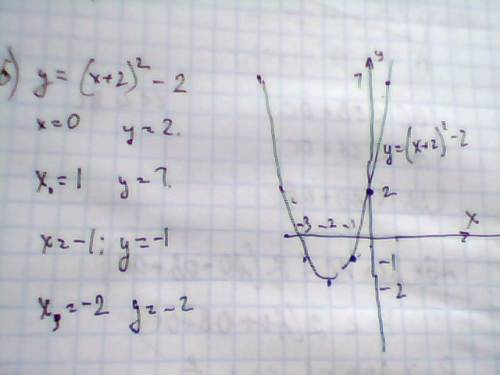 б) y = (x+2)² - 2
x=0 y=2.
x₁=1 y=7.
x=-1; y=-1
x₃=-2 y=-2
y
7
y=(x+2)²-2
2
x
-3 -2 -1
-1
-2